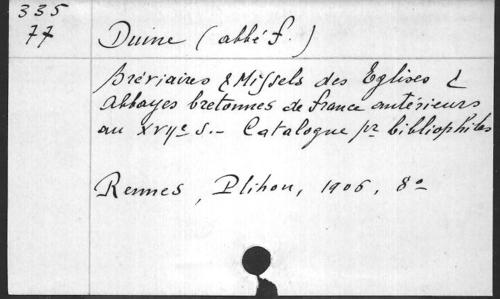 335
77
Duine (abbé f.)
Bréviaires & Missels des Eglises &
Abbayes bretonnes de france antérieurs
au XVIIe s. – Catalogue pr bibliophiles
Rennes, Plihon, 1906, 8o